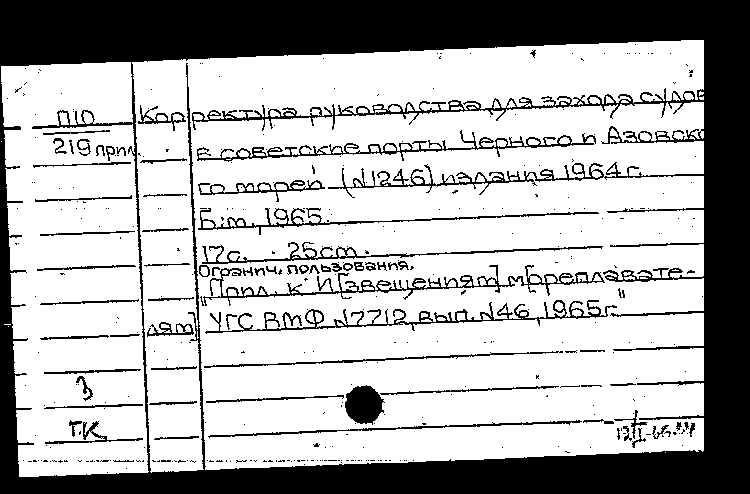 П10 Корректура руководства для захода судов
219 прил. в советские порты Черного и Азовско
го морей (N1246) издания 1964 г.
Б.м., 1965.
17с. 25cm.
Огранич. пользования.
"Прил. к И[звещениям] м[ореплавате-
лям] УГС ВМФ N7712, вып. N46, 1965г."
3
Т.К.